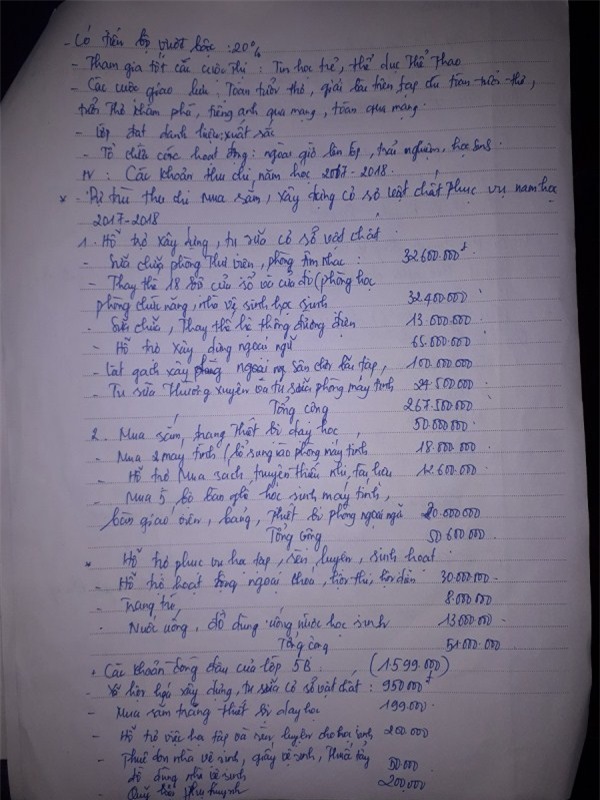 - Có tiến bộ vượt bậc : 20%
- Tham gia tốt các cuộc thi : Tin học trẻ, thể dục Thể Thao
- Các cuộc giao lưu : Toán tuổi thơ, giải
trên tạp chí toán tuổi thơ,
tuổi thơ khám phá, tiếng anh qua mạng, toán qua mạng.
- Lớp đạt danh hiệu: xuất sắc
- Tổ chức các hoạt động : ngoài giờ lên lớp, trải nghiệm, học sinh
IV : Các khoản thu chi, năm học 2017-2018.
* - Dự trù thu chi Mua sắm, xây dựng cơ sở vật chất phục vụ năm học
2017-2018
1. Hỗ trợ xây dựng, tu sửa cơ sở vật chất
- Sửa chữa phòng thư viện, phòng âm nhạc : 32.600.000đ
- Thay thế 18 bộ cửa sổ và cửa (phòng học
phòng chức năng, nhà vệ sinh học sinh 32.400.000
- Sửa chữa, Thay thế hệ thống đường điện 13.000.000
- Hỗ trợ xây dựng ngoại ngữ 65.000.000
- Lát gạch ngoài sân chơi bãi tập, 100.000.000
- Tu sửa thường xuyên và tu sửa phòng máy tính 24.500.000
Tổng cộng 267.500.000
2. Mua sắm, trang thiết bị dạy học, 50.000.000
- Mua 2 máy tính (bổ sung vào phòng máy tính 18.000.000
- Hỗ trợ Mua sách, truyện thiếu nhi, tài liệu 12.600.000
- Mua 5 bộ bàn ghế học sinh máy tính,
bàn giáo viên, bảng, thiết bị phòng ngoại ngữ 20.000.000
Tổng cộng 50 600 000
* Hỗ trợ phục vụ học tập, rèn luyện, sinh hoạt
- Hỗ trợ hoạt động ngoại khóa, hội thi, 30.000.000
- Trang trí, 8.000.000
- Nước uống, đồ dùng uống nước học sinh 13.000.000
Tổng cộng 51.000.000
+ Các khoản đóng đậu của lớp 5B : (1.599.000)
- Xã hội hoá xây dựng, tu sửa cơ sở vật chất : 950.000đ
- Mua sắm trang thiết bị dạy học 199.000
- Hỗ trợ việc học tập và rèn luyện cho học sinh 200.000
- Thuê dọn nhà vệ sinh, giấy vệ sinh,
đồ dùng nhà vệ sinh 50.000
- Quỹ hội phụ huynh 200.000